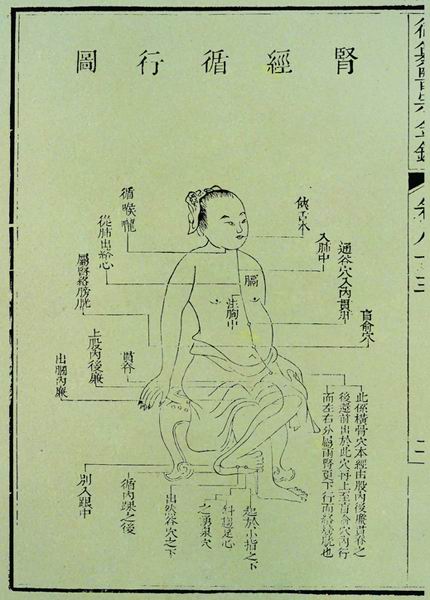 腎經循行圖
御纂醫宗金鑑
卷八十三
挾舌本
入肺中
通谷穴入內貫肝
肓俞穴
膈
注胸中
循喉嚨
從肺出絡心
屬腎絡膀胱
上股內後廉
貫脊
出膕內廉
此係橫骨穴本經由股內後廉貫脊之
後還前出於此穴再上至肓俞穴內行
而左右分屬兩腎更下行而絡膀胱也
起於小指之下
斜趨足心
之湧泉穴
出然谷穴之下
循內踝之後
別入跟中